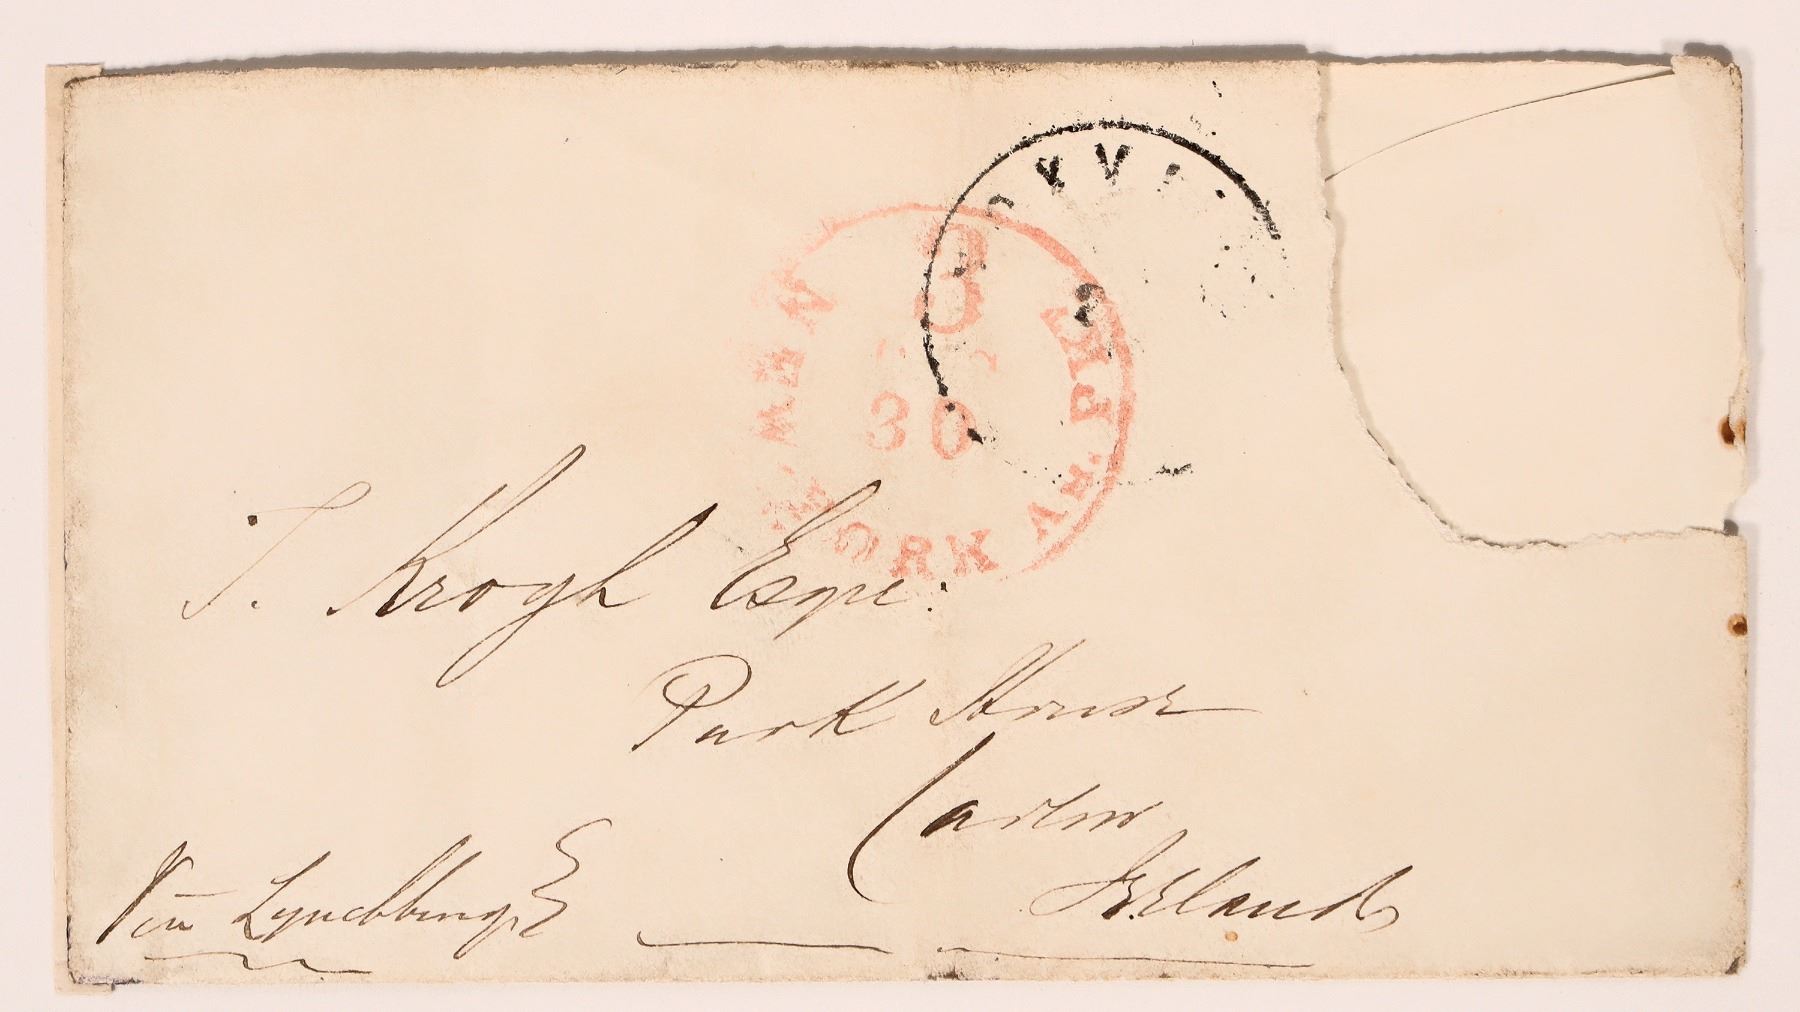 OXVI
3
NEW YORK AM. PKT.
30
T. Krogh Esqre.
Park House
Carlow
Ireland
Via Lynchburg